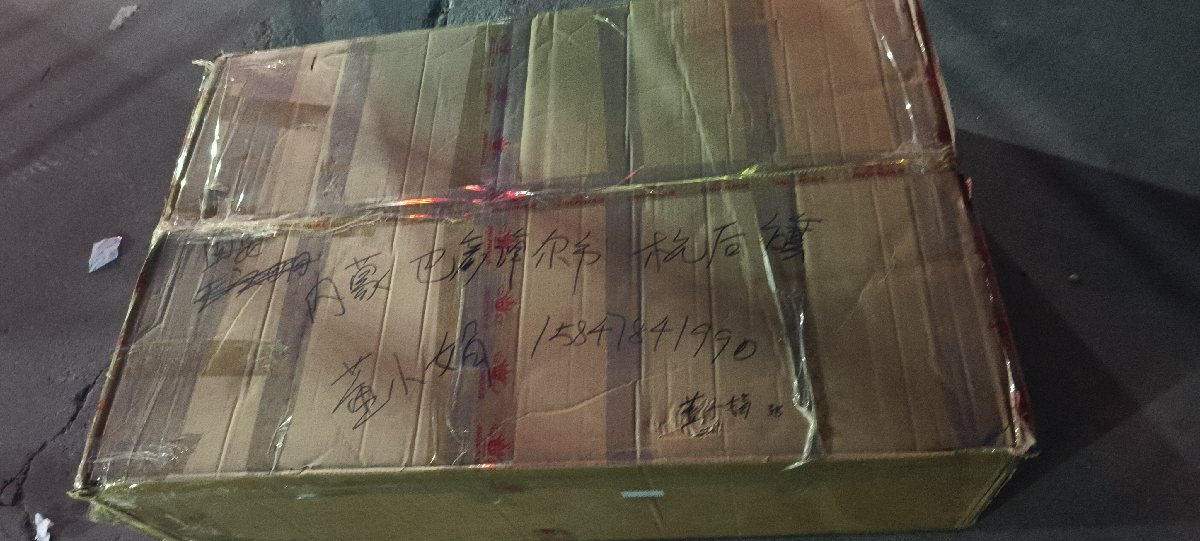 内蒙巴彦淖尔市 杭后旗
董小娟 15847841990